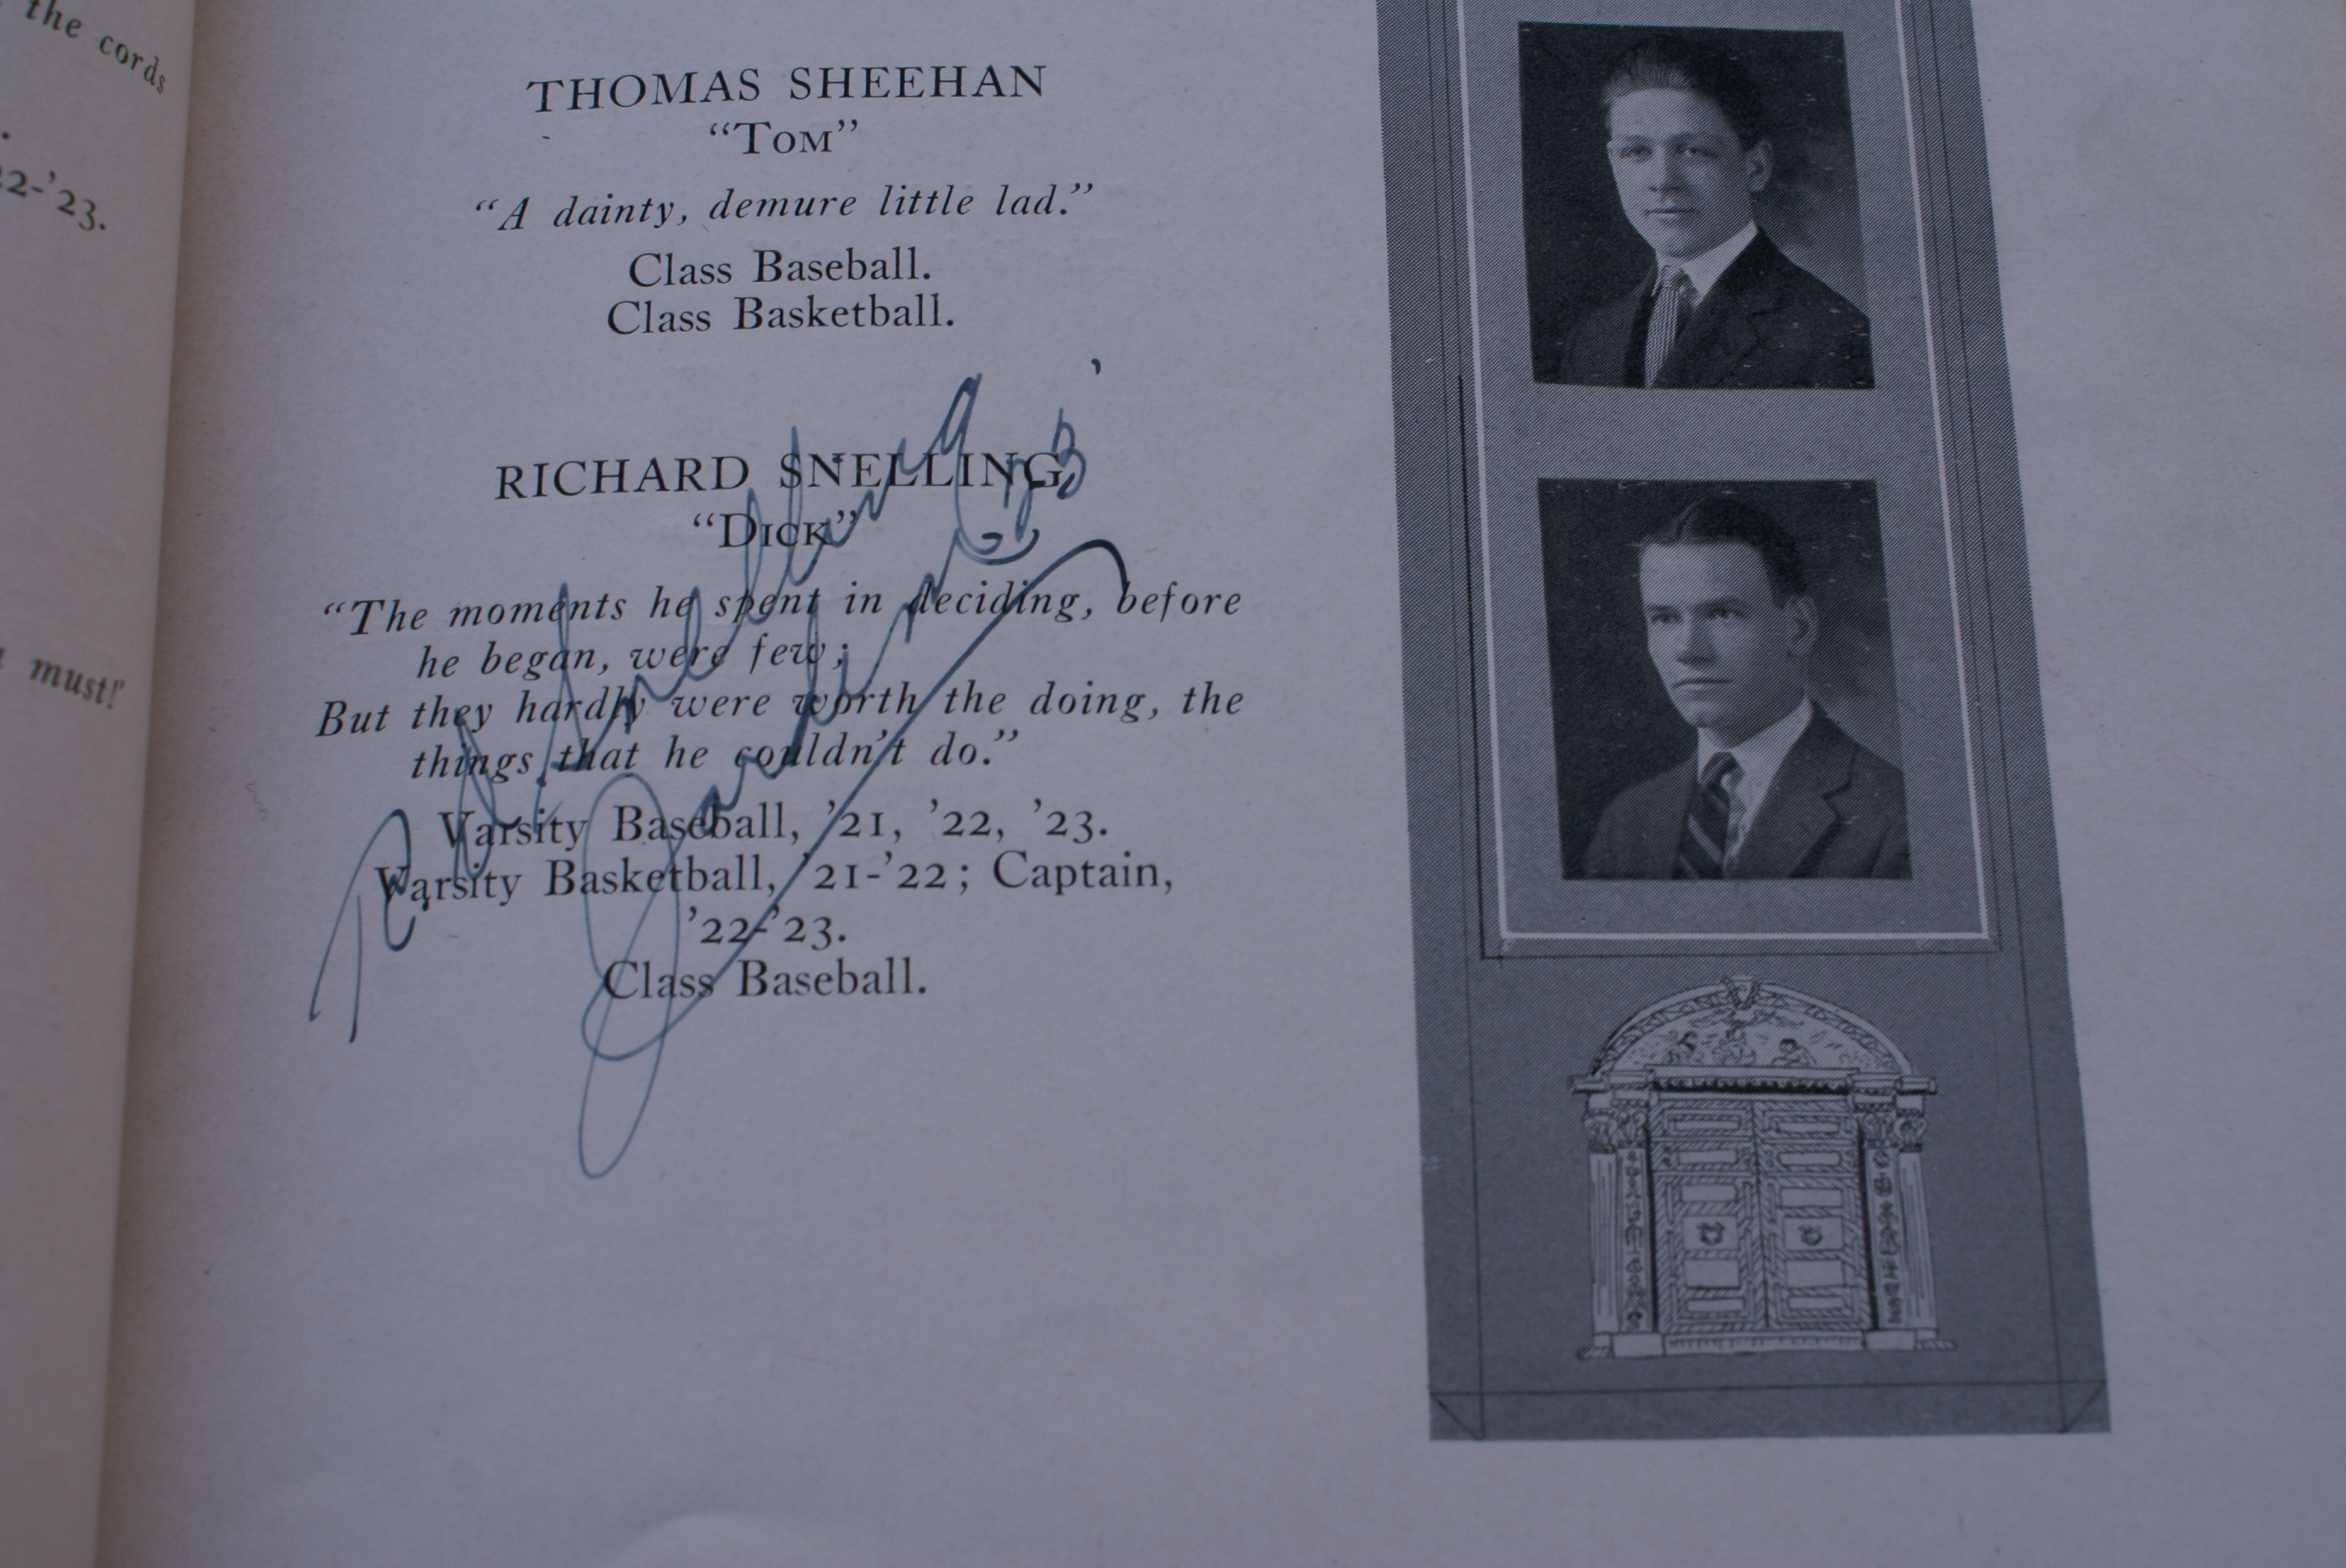 the cords
'23.
must!"
THOMAS SHEEHAN
“TOM”
“A dainty, demure little lad.”
Class Baseball.
Class Basketball.
RICHARD SNELLING
“DICK”
“The moments he spent in deciding, before
he began, were few;
But they hardly were worth the doing, the
things that he couldn't do.”
Varsity Baseball, '21, '22, '23.
Varsity Basketball, '21-'22; Captain,
'22-'23.
Class Baseball.
Snelling